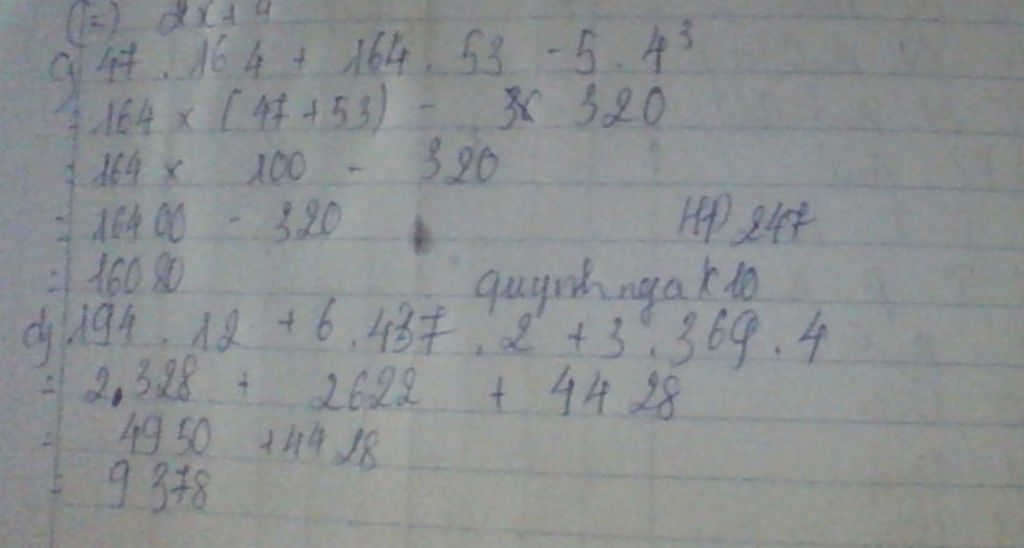 (=) 2x + 4
c) 47 . 164 + 164 . 53 - 5 . 4³
= 164 x (47 + 53) - 320
= 164 x 100 - 320
= 16400 - 320
HP 247
= 16080
quynh nga k10
d) 194 . 12 + 6 . 437 . 2 + 3 . 369 . 4
= 2.328 + 2622 + 4428
= 4950 + 4428
= 9378